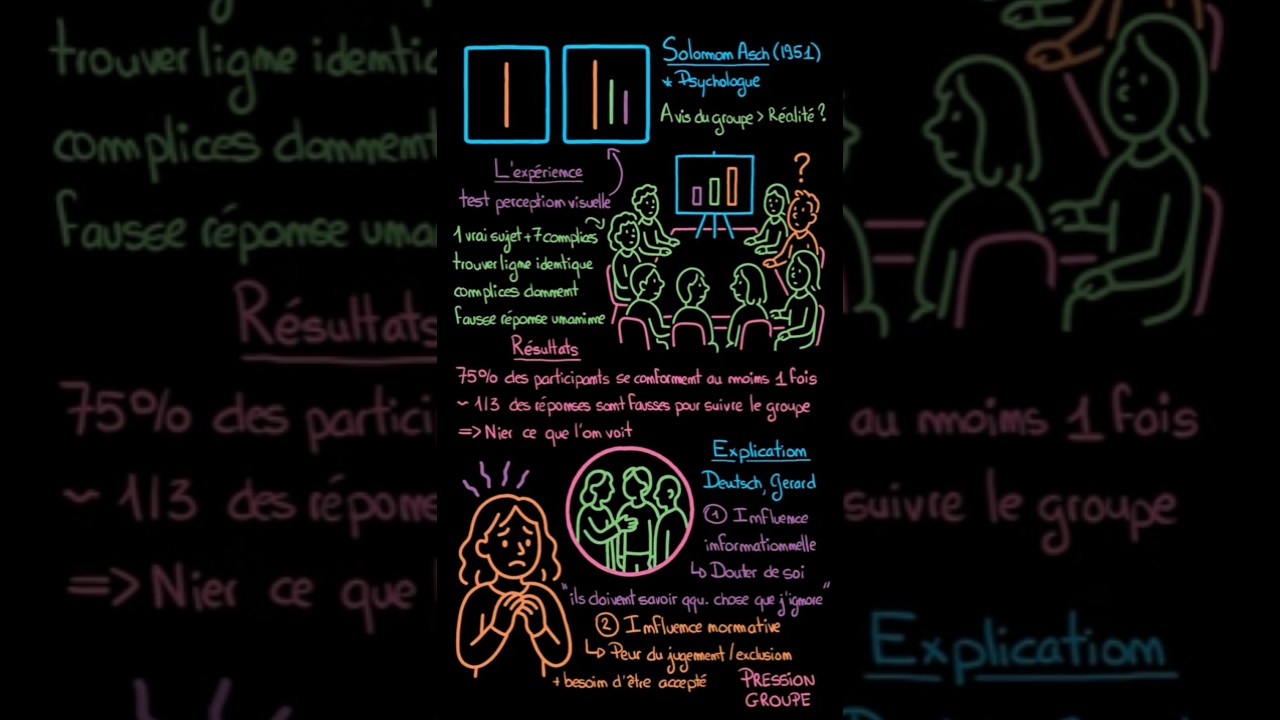 Solomon Asch (1951)
* Psychologue
Avis du groupe > Réalité ?
L'expérience
test perception visuelle
1 vrai sujet + 7 complices
trouver ligne identique
complices donnent
fausse réponse unanime
?
Résultats
75% des participants se conforment au moins 1 fois
~ 1/3 des réponses sont fausses pour suivre le groupe
=> Nier ce que l'on voit
Explication
Deutsch, Gerard
① Influence
informationnelle
↳ Douter de soi
"ils doivent savoir qqu. chose que j'ignore"
② Influence normative
↳ Peur du jugement / exclusion
+ besoin d'être accepté
PRESSION
GROUPE
trouver ligne identiq
complices donnent
fausse réponse unan
Résultats
75% des partici
~ 1/3 des répons
=> Nier ce que
au moins 1 fois
suivre le groupe
Explication